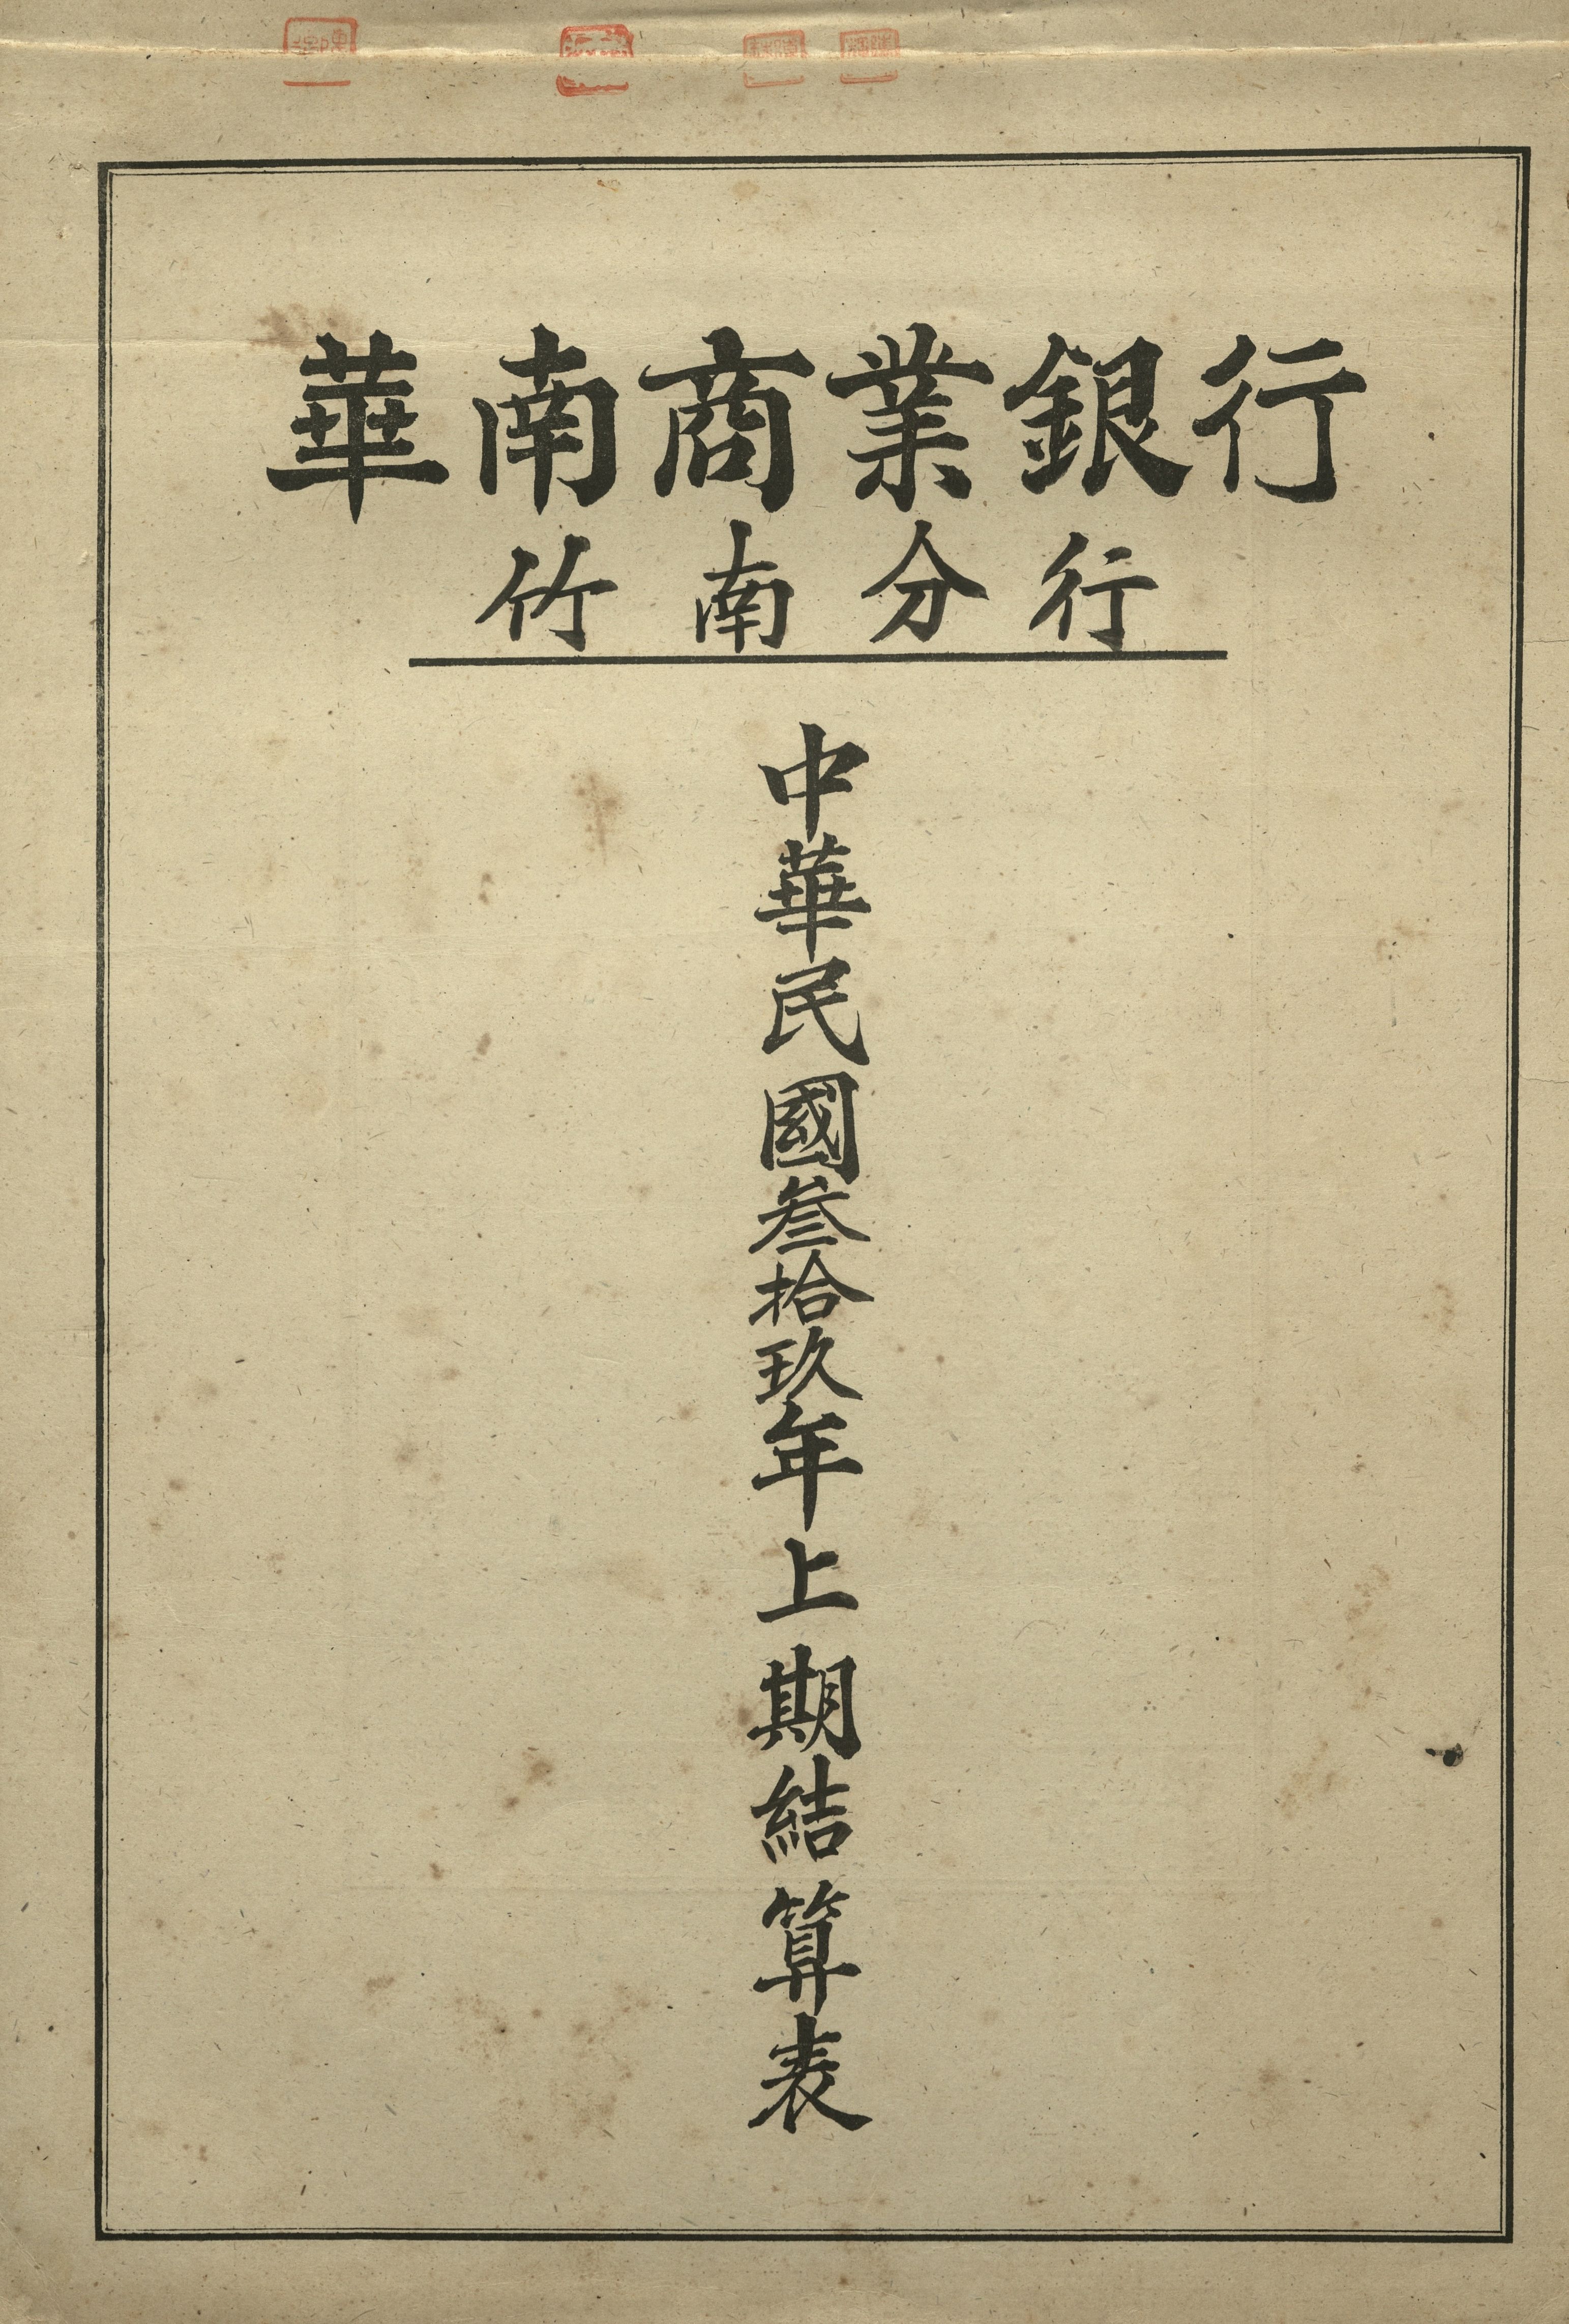 華南商業銀行
竹南分行
中華民國叁拾玖年上期結算表